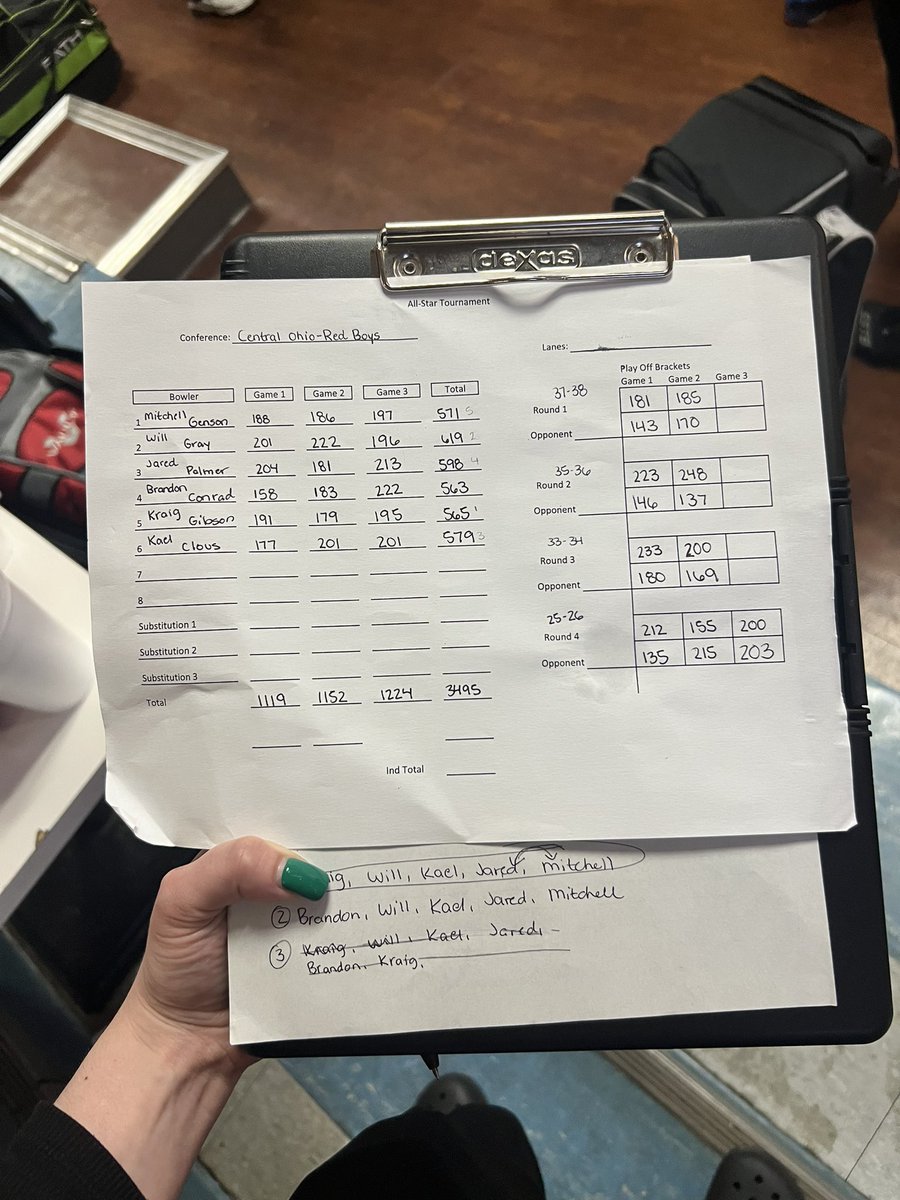 PATH
dexas
All-Star Tournament
Conference: Central Ohio-Red Boys
Lanes:
Bowler Game 1 Game 2 Game 3 Total
1 Mitchell Genson 188 186 197 571 5
2 Will Gray 201 222 196 619 2
3 Jared Palmer 204 181 213 598 4
4 Brandon Conrad 158 183 222 563
5 Kraig Gibson 191 179 195 565 1
6 Kael Clous 177 201 201 579 3
7
8
Substitution 1
Substitution 2
Substitution 3
Total 1119 1152 1224 3495
Ind Total
Play Off Brackets
Game 1 Game 2 Game 3
37-38
Round 1 181 185
Opponent 143 170
35-36
Round 2 223 248
Opponent 146 137
33-34
Round 3 233 200
Opponent 180 169
25-26
Round 4 212 155 200
Opponent 135 215 203
ig, Will, Kael, Jared, Mitchell
2 Brandon, Will, Kael, Jared, Mitchell
3 Kraig, Will, Kael, Jared, -
Brandon, Kraig,